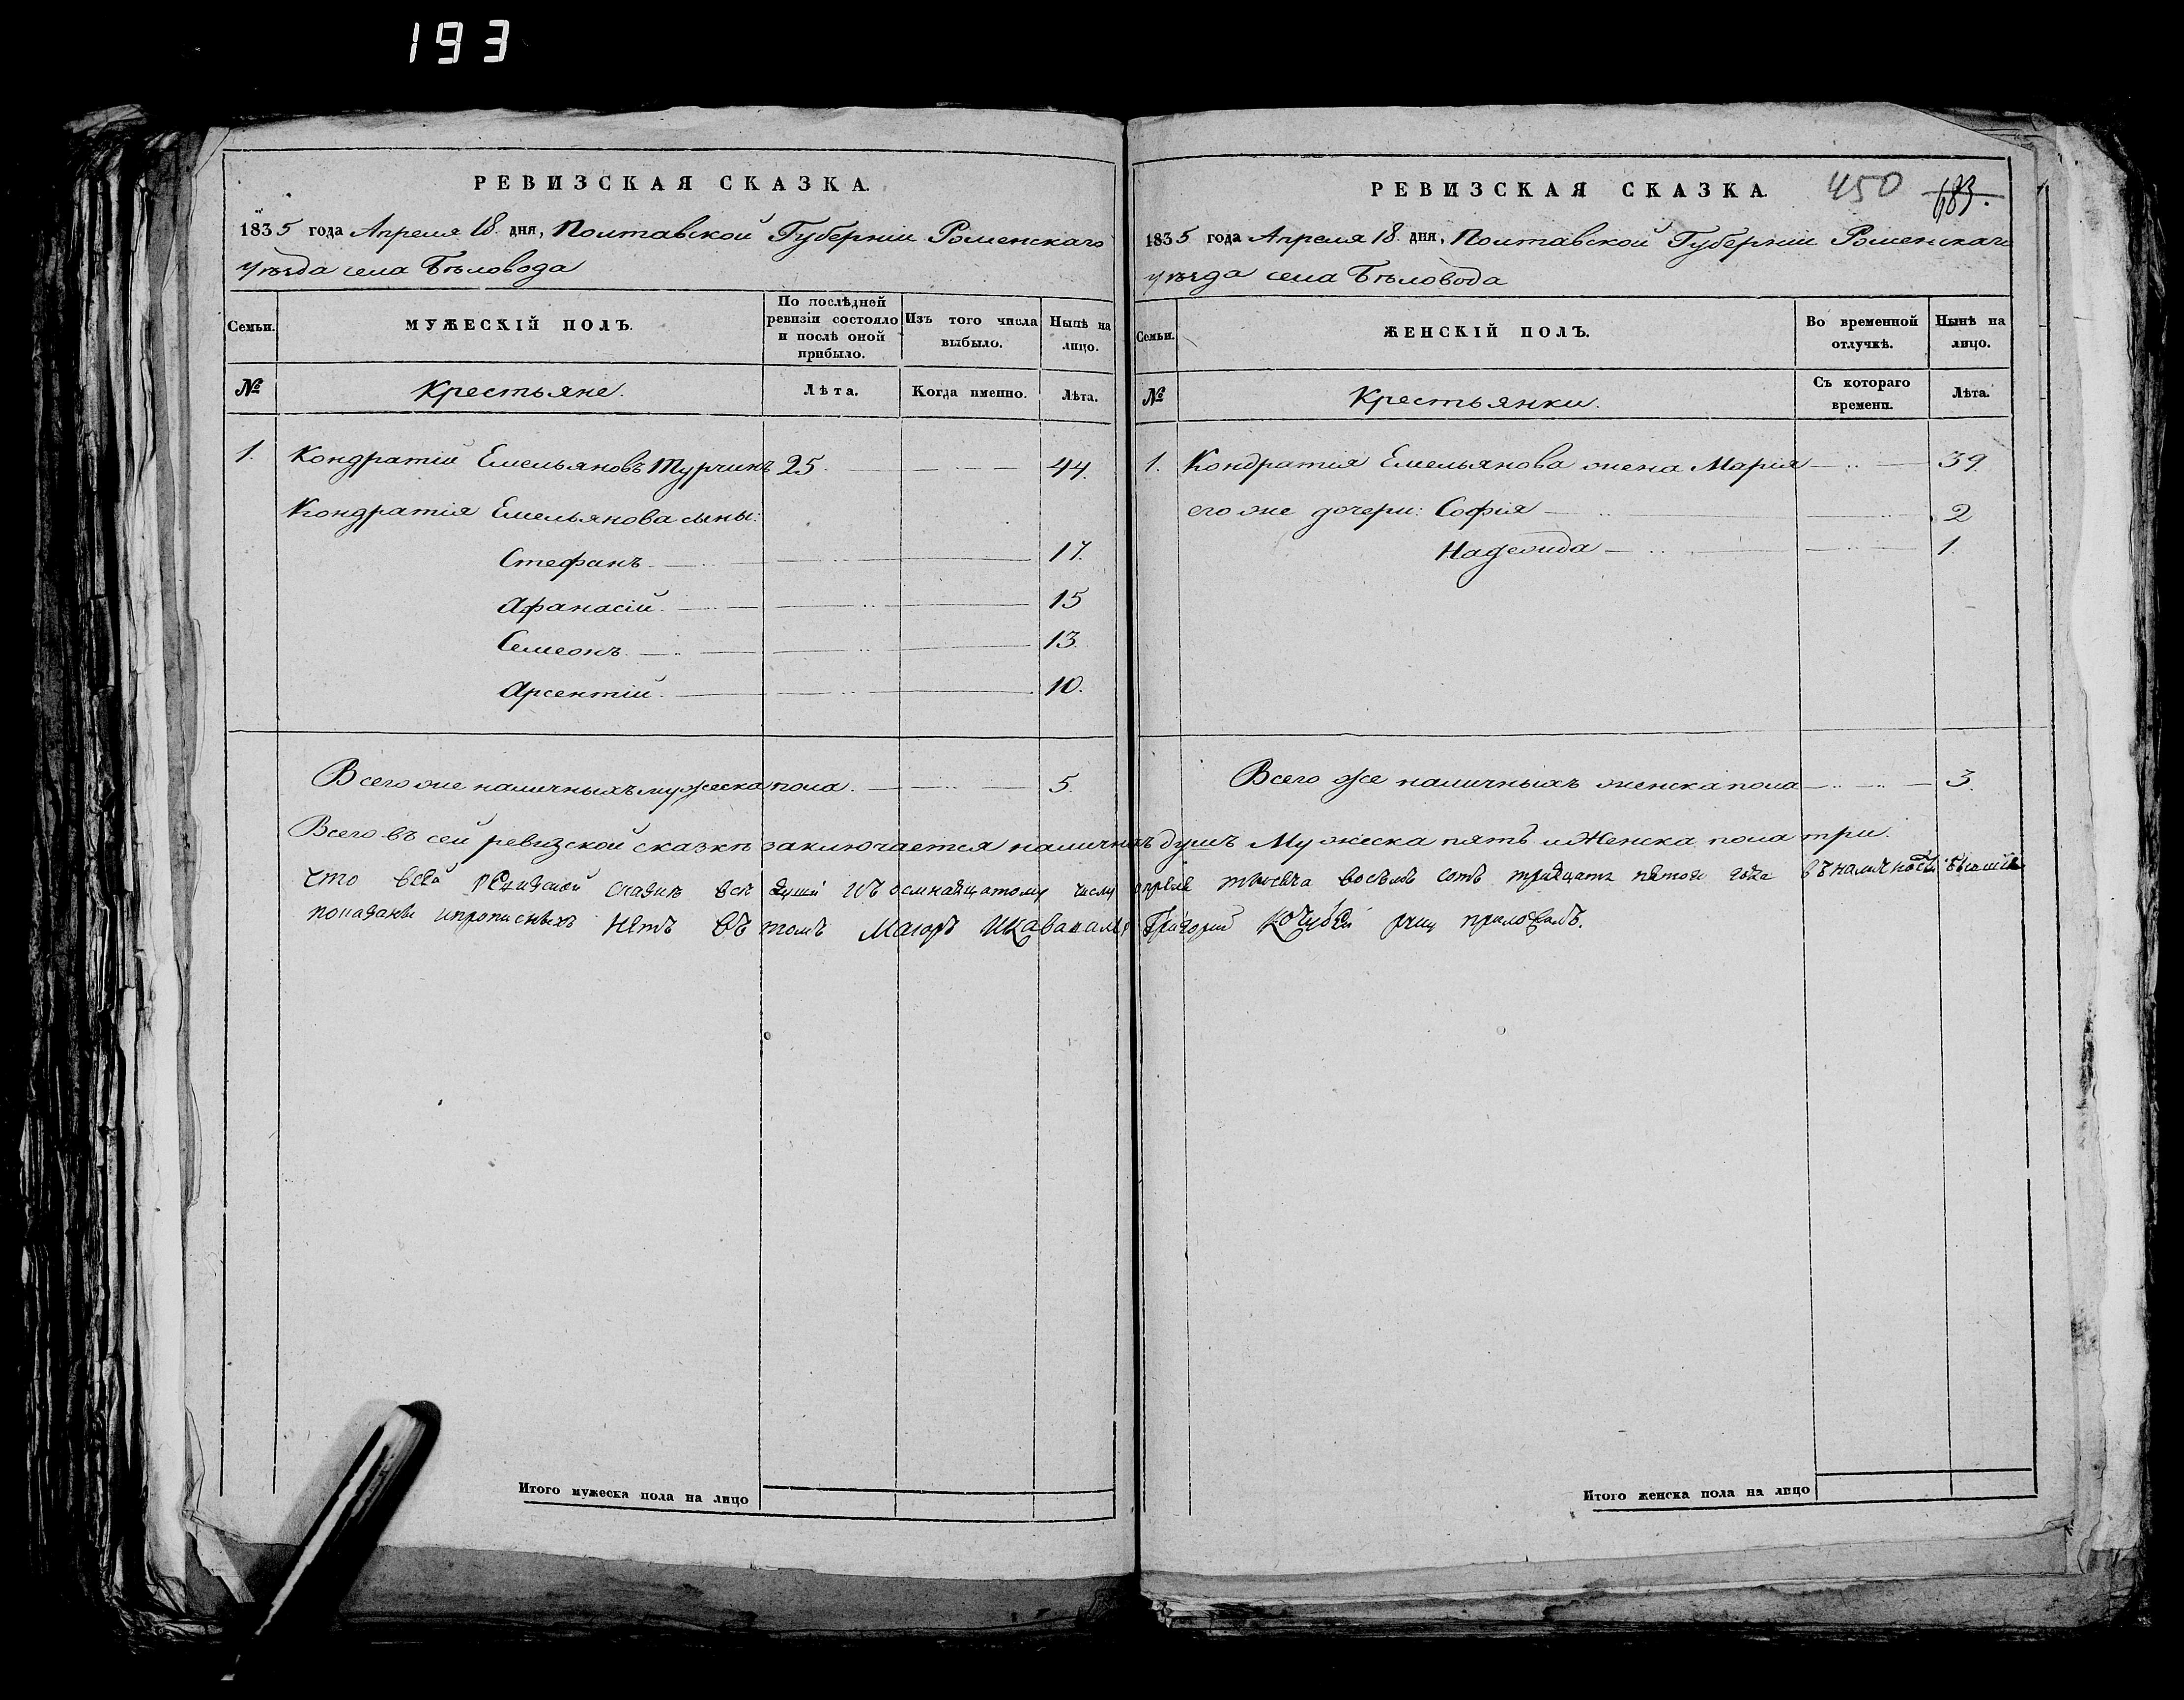 193
РЕВИЗСКАЯ СКАЗКА.
1835 года Апреля 18. дня, Полтавской Губерніи Роменскаго
уѣзда села Бѣловода
Семьи.
МУЖЕСКІЙ ПОЛЪ.
По послѣдней ревизіи состояло и послѣ оной прибыло.
Изъ того числа выбыло.
Нынѣ на лицо.
№
Крестьяне.
Лѣта.
Когда именно.
Лѣта.
1. Кондратій Емельяновъ Турчинъ 25. 44.
Кондратія Емельянова сыны:
Стефанъ. 17.
Афанасій. 15
Семеонъ. 13.
Арсентій. 10.
Всего же наличныхъ мужеска пола. 5.
Итого мужеска пола на лицо
РЕВИЗСКАЯ СКАЗКА.
450
683.
1835 года Апреля 18 дня, Полтавской Губерніи Роменскаго
уѣзда села Бѣловода
Семьи.
ЖЕНСКІЙ ПОЛЪ.
Во временной отлучкѣ.
Нынѣ на лицо.
№
Крестьянки.
Съ котораго времени.
Лѣта.
1. Кондратія Емельянова жена Марія 39.
его же дочери: Софія 2
Надежда 1.
Всего же наличныхъ женска пола 3.
Всего въ сей ревизской сказкѣ заключается наличныхъ душъ Мужеска пять и Женска пола три.
что всей ревизской сказкѣ всѣ души къ осмнатцатому числу апреля тысеча восѣмь сотъ тридцать пятого года въ наличности
и прописныхъ нетъ въ томъ Маіоръ и Кавалеръ Григорий Кочубей руку приложалъ.
Итого женска пола на лицо